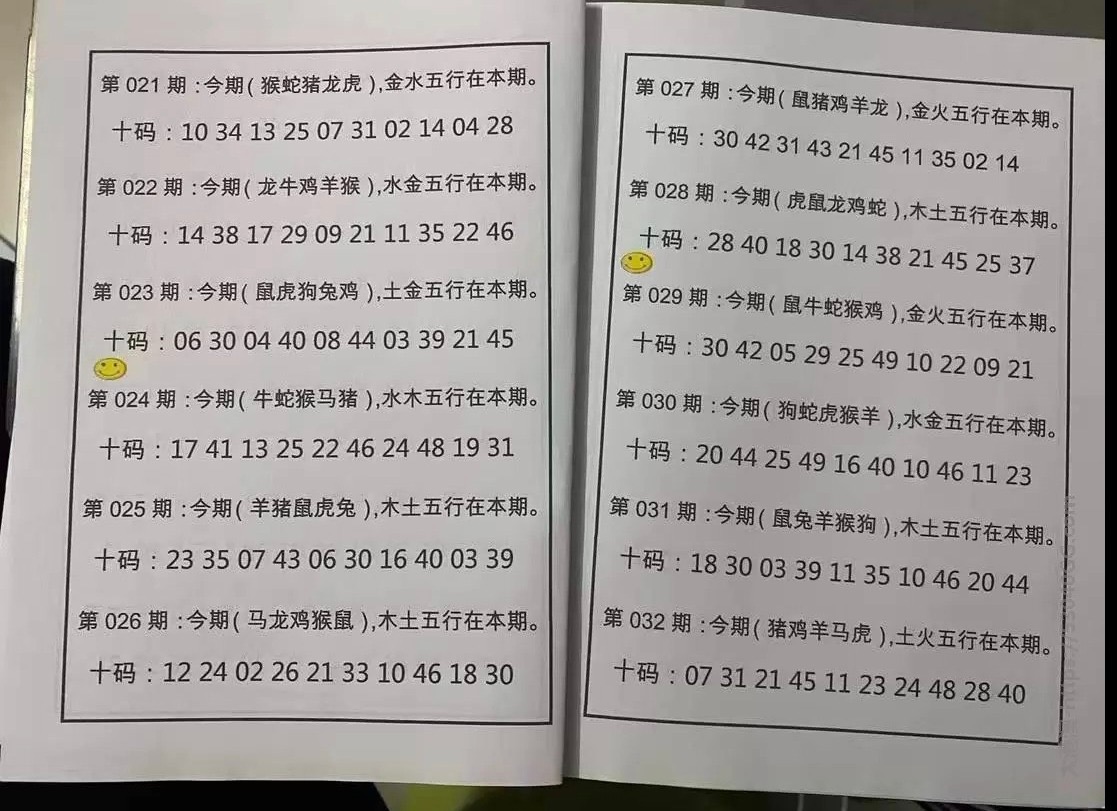 第 021 期 :今期( 猴蛇猪龙虎 ),金水五行在本期。
十码：10 34 13 25 07 31 02 14 04 28
第 022 期 :今期( 龙牛鸡羊猴 ),水金五行在本期。
十码：14 38 17 29 09 21 11 35 22 46
第 023 期 :今期( 鼠虎狗兔鸡 ),土金五行在本期。
十码：06 30 04 40 08 44 03 39 21 45
第 024 期 :今期( 牛蛇猴马猪 ),水木五行在本期。
十码：17 41 13 25 22 46 24 48 19 31
第 025 期 :今期( 羊猪鼠虎兔 ),木土五行在本期。
十码：23 35 07 43 06 30 16 40 03 39
第 026 期 :今期( 马龙鸡猴鼠 ),木土五行在本期。
十码：12 24 02 26 21 33 10 46 18 30
第 027 期 :今期( 鼠猪鸡羊龙 ),金火五行在本期。
十码：30 42 31 43 21 45 11 35 02 14
第 028 期 :今期( 虎鼠龙鸡蛇 ),木土五行在本期。
十码：28 40 18 30 14 38 21 45 25 37
第 029 期 :今期( 鼠牛蛇猴鸡 ),金火五行在本期。
十码：30 42 05 29 25 49 10 22 09 21
第 030 期 :今期( 狗蛇虎猴羊 ),水金五行在本期。
十码：20 44 25 49 16 40 10 46 11 23
第 031 期 :今期( 鼠兔羊猴狗 ),木土五行在本期。
十码：18 30 03 39 11 35 10 46 20 44
第 032 期 :今期( 猪鸡羊马虎 ),土火五行在本期。
十码：07 31 21 45 11 23 24 48 28 40